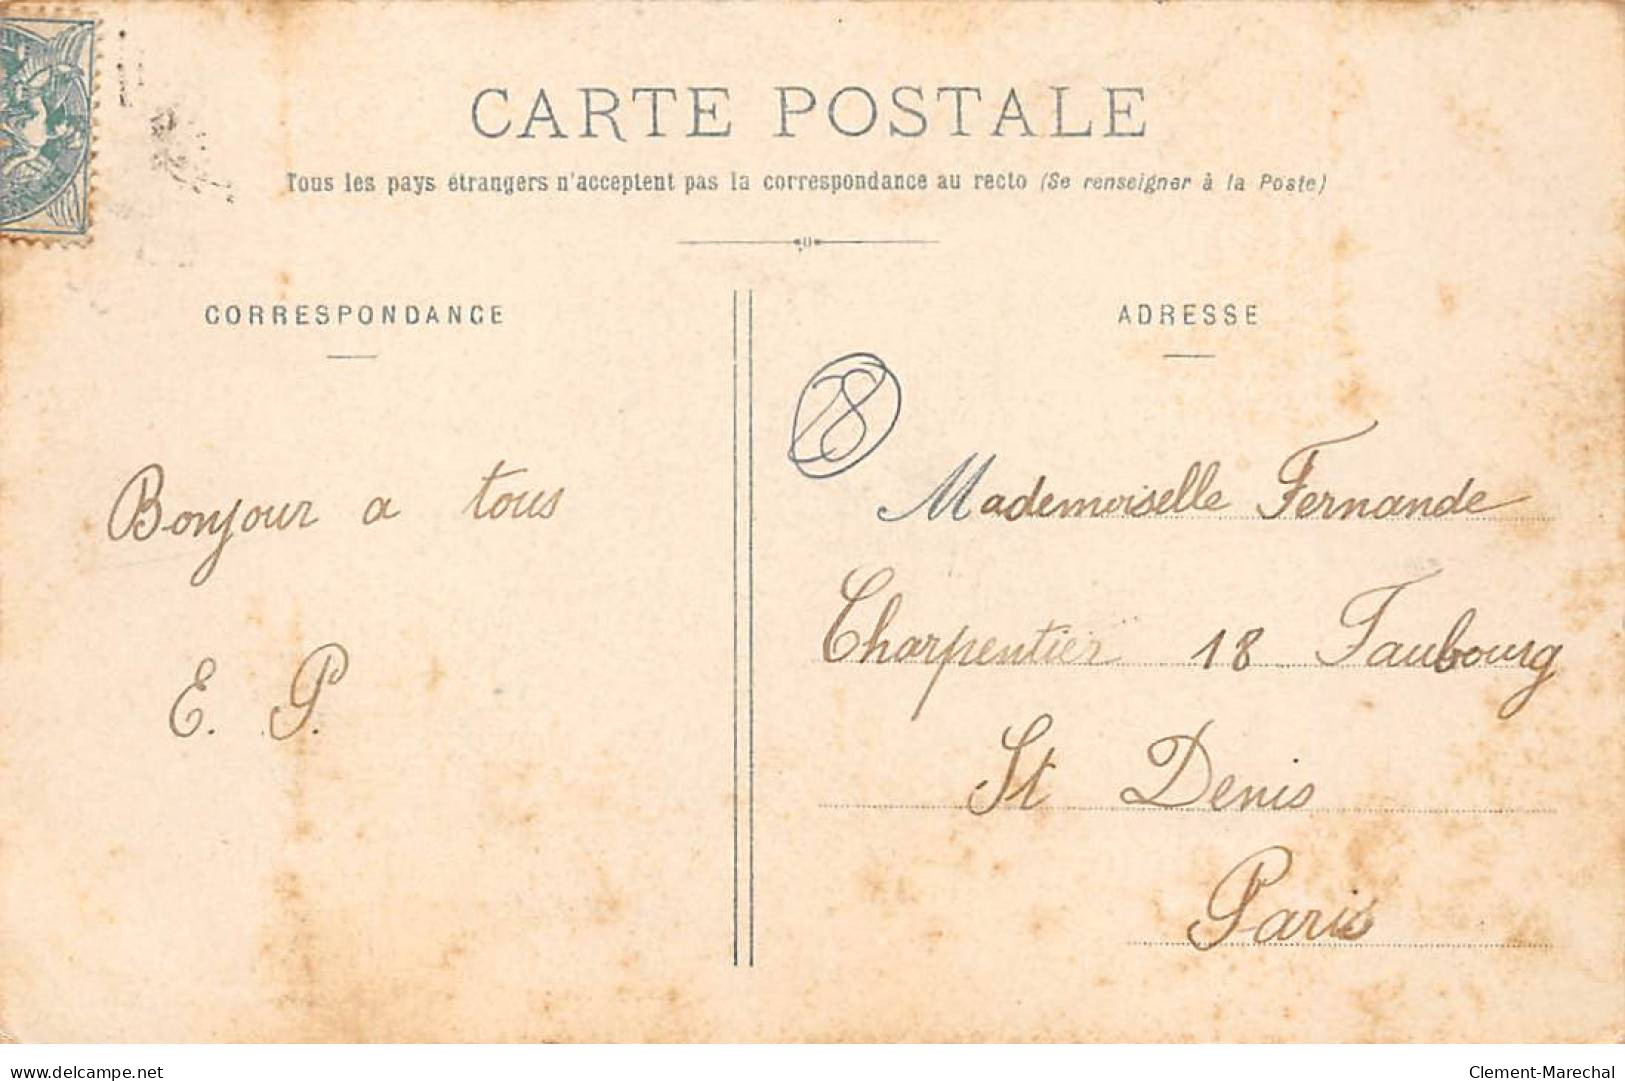 CARTE POSTALE
Tous les pays étrangers n'acceptent pas la correspondance au recto (Se renseigner à la Poste)
CORRESPONDANCE
ADRESSE
28
Bonjour a tous
E. P.
Mademoiselle Fernande
Charpentier 18 Faubourg
St Denis
Paris
www.delcampe.net
Clement-Marechal